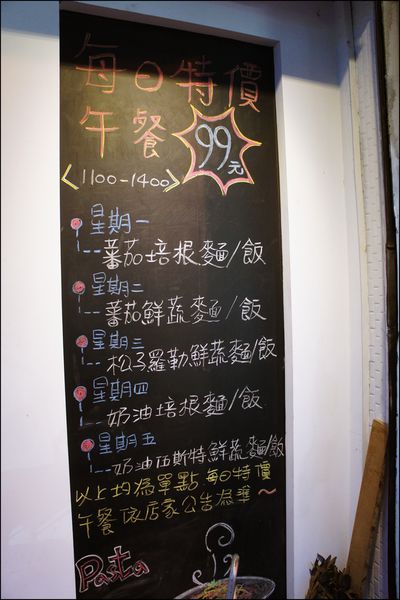 每日特價
午餐 99元
<1100-1400>
星期一
番茄培根麵/飯
星期二
番茄鮮蔬麵/飯
星期三
松子羅勒鮮蔬麵/飯
星期四
奶油培根麵/飯
星期五
奶油匹斯特鮮蔬麵/飯
以上均為單點 每日特價
午餐 依店家公告為準~
Pasta